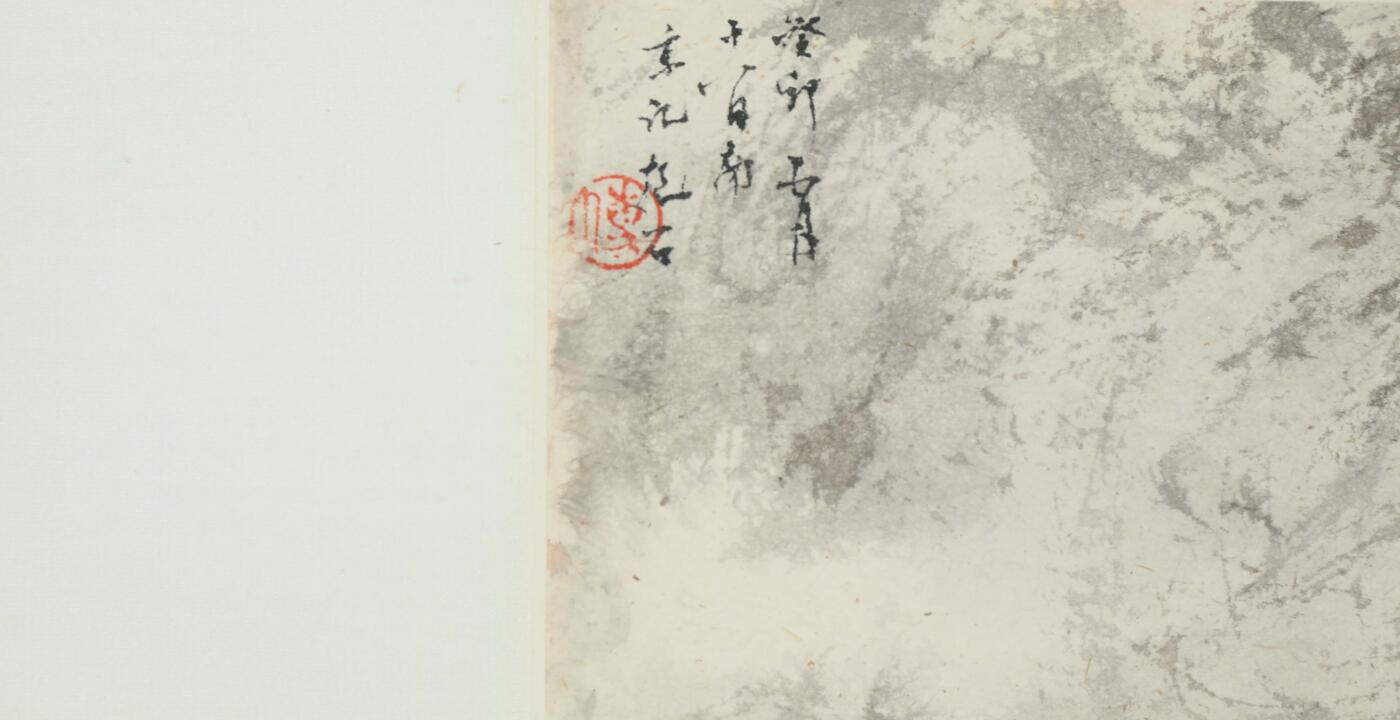 癸卯五月
十八日
京記抱石